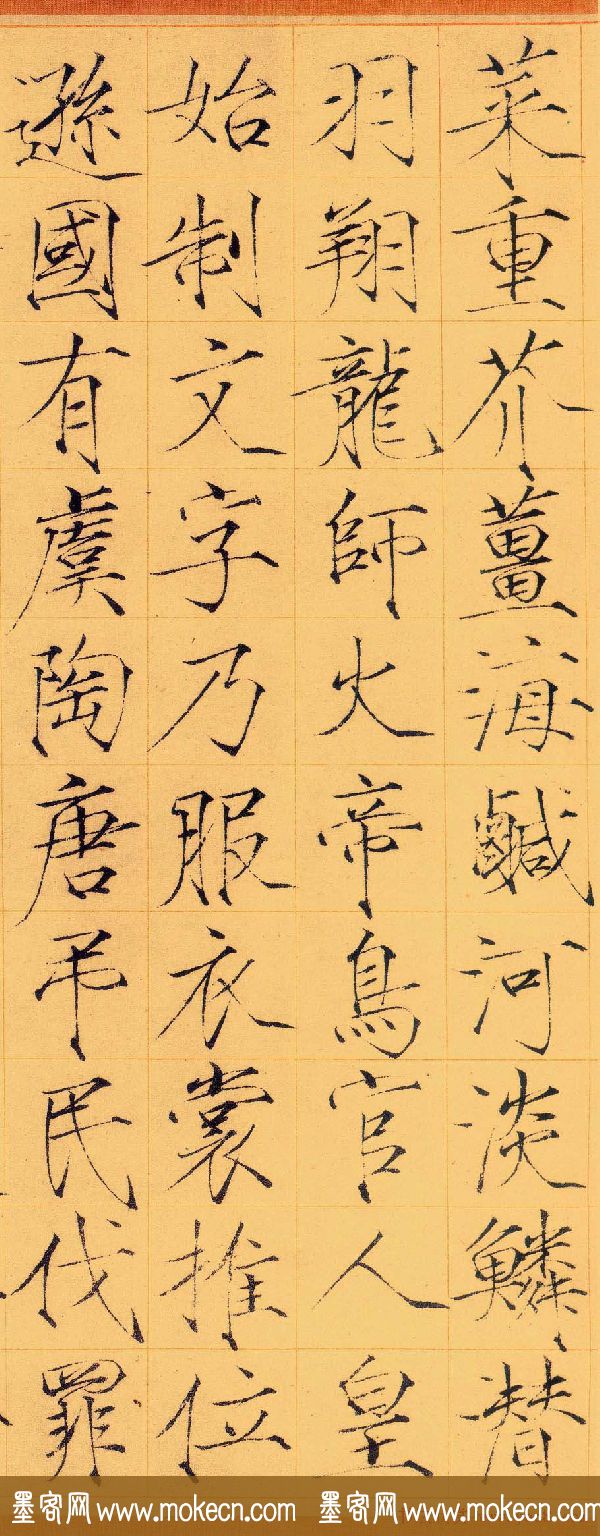 菜重芥薑海鹹河淡鱗潛
羽翔龍師火帝鳥官人皇
始制文字乃服衣裳推位
遜國有虞陶唐弔民伐罪
墨客网 www.mokecn.com 墨客网 www.mokecn.com